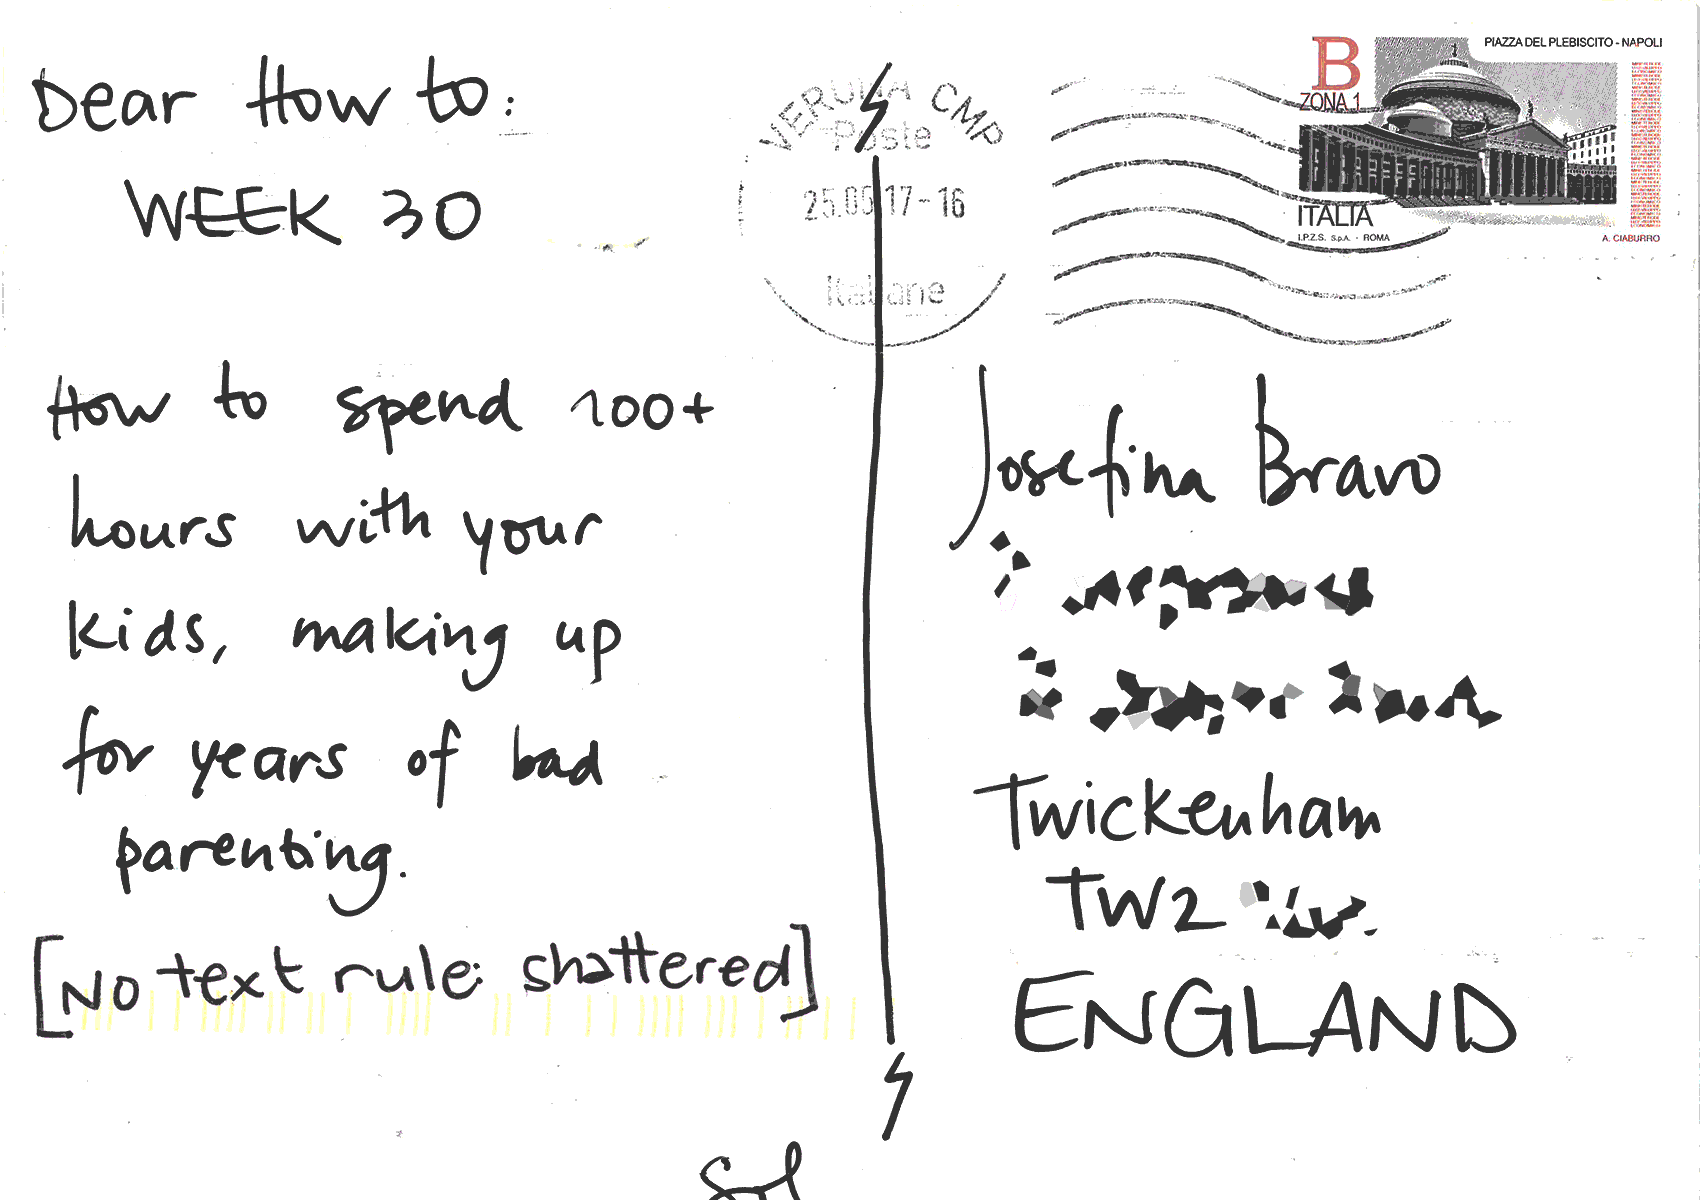 Dear How to:
WEEK 30
How to spend 100+
hours with your
kids, making up
for years of bad
parenting.
[NO text rule: shattered]
Sol
VERONA CMP
Poste
17-16
Italiane
B
ZONA 1
PIAZZA DEL PLEBISCITO - NAPOLI
ITALIA
I.P.Z.S. S.p.A. - ROMA
A. CIABURRO
Josefina Bravo
Twickenham
TW2
ENGLAND